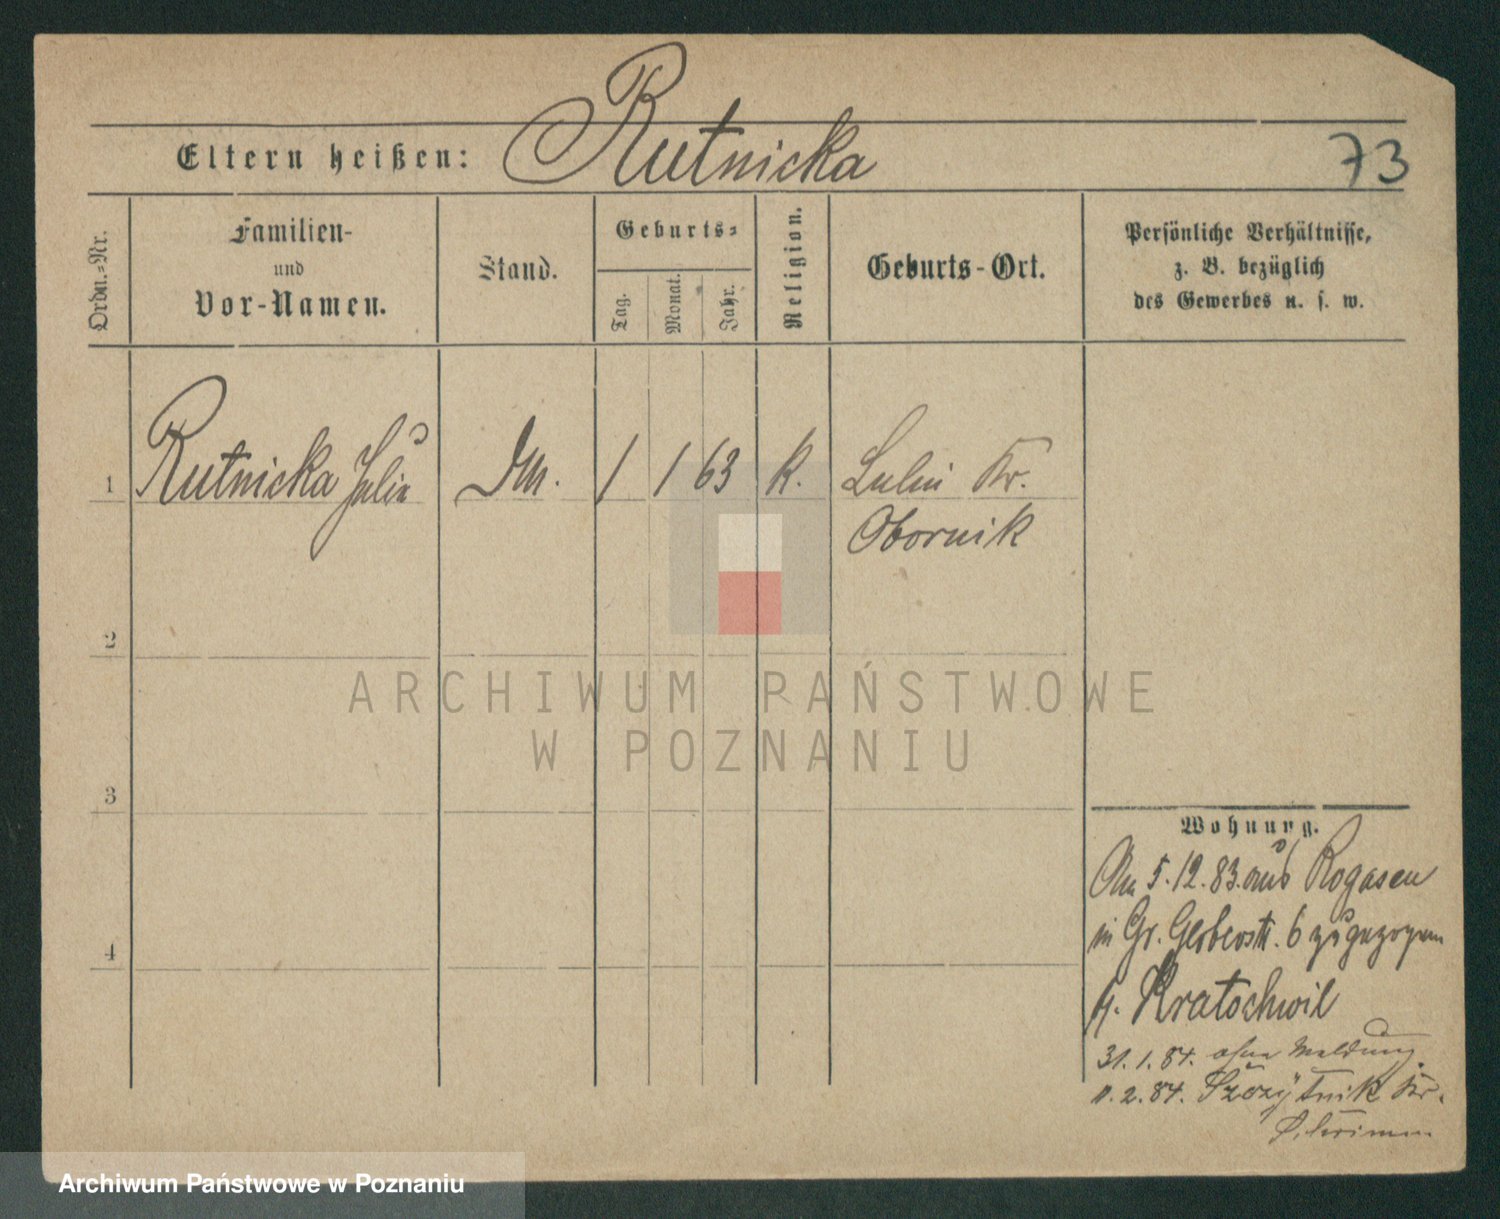 Rutnicka
Eltern heißen:
73
Ordn.=Nr.
Familien-
und
Vor-Namen.
Stand.
Geburts=
Tag.
Monat.
Jahr.
Religion.
Geburts-Ort.
Persönliche Verhältnisse,
z. B. bezüglich
des Gewerbes u. s. w.
1
Rutnicka Julia
1
1
63
k.
Lulin Kr.
Obornik
2
3
4
ARCHIWUM PAŃSTWOWE
W POZNANIU
Wohnung.
Am 5.12.83. aus Rogasen
in Gr. Gerberstr. 6 zugezogen
Kratochwil
31.1.84. ohne Meldung.
2.84. Kr.
Schrimm
Archiwum Państwowe w Poznaniu